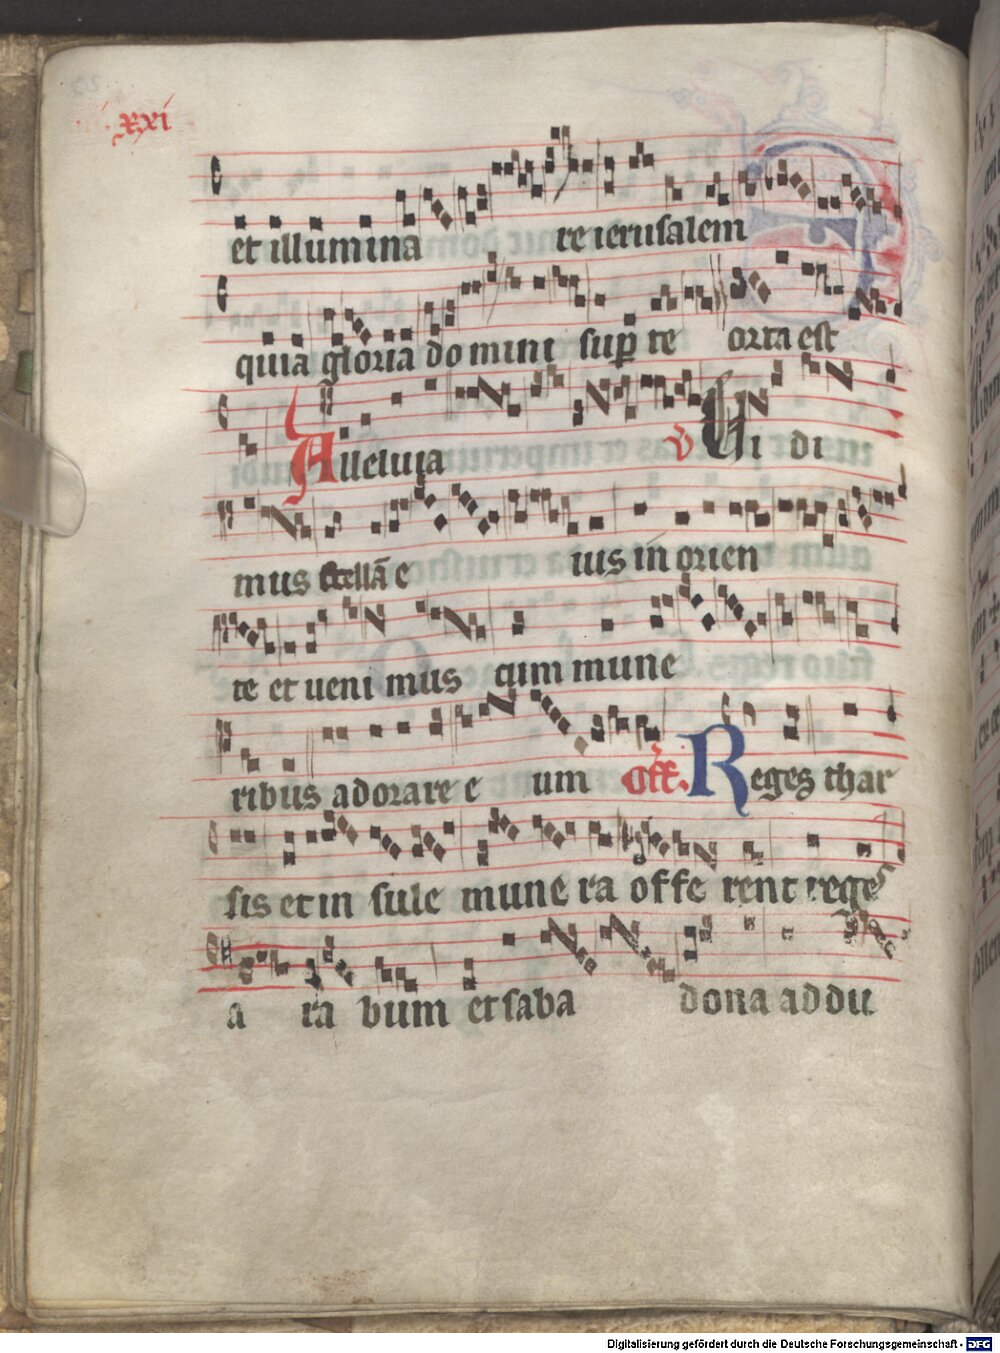 xxi
et illumina re ierusalem
quia gloria domini sup te orta est
Alleluia v Ui di
mus stellã e ius in orien
te et ueni mus cum mune
ribus adorare e um Off. Reges thar
sis et in sule mune ra offe rent rege
a ra bum et saba dona addu
Digitalisierung gefördert durch die Deutsche Forschungsgemeinschaft - DFG